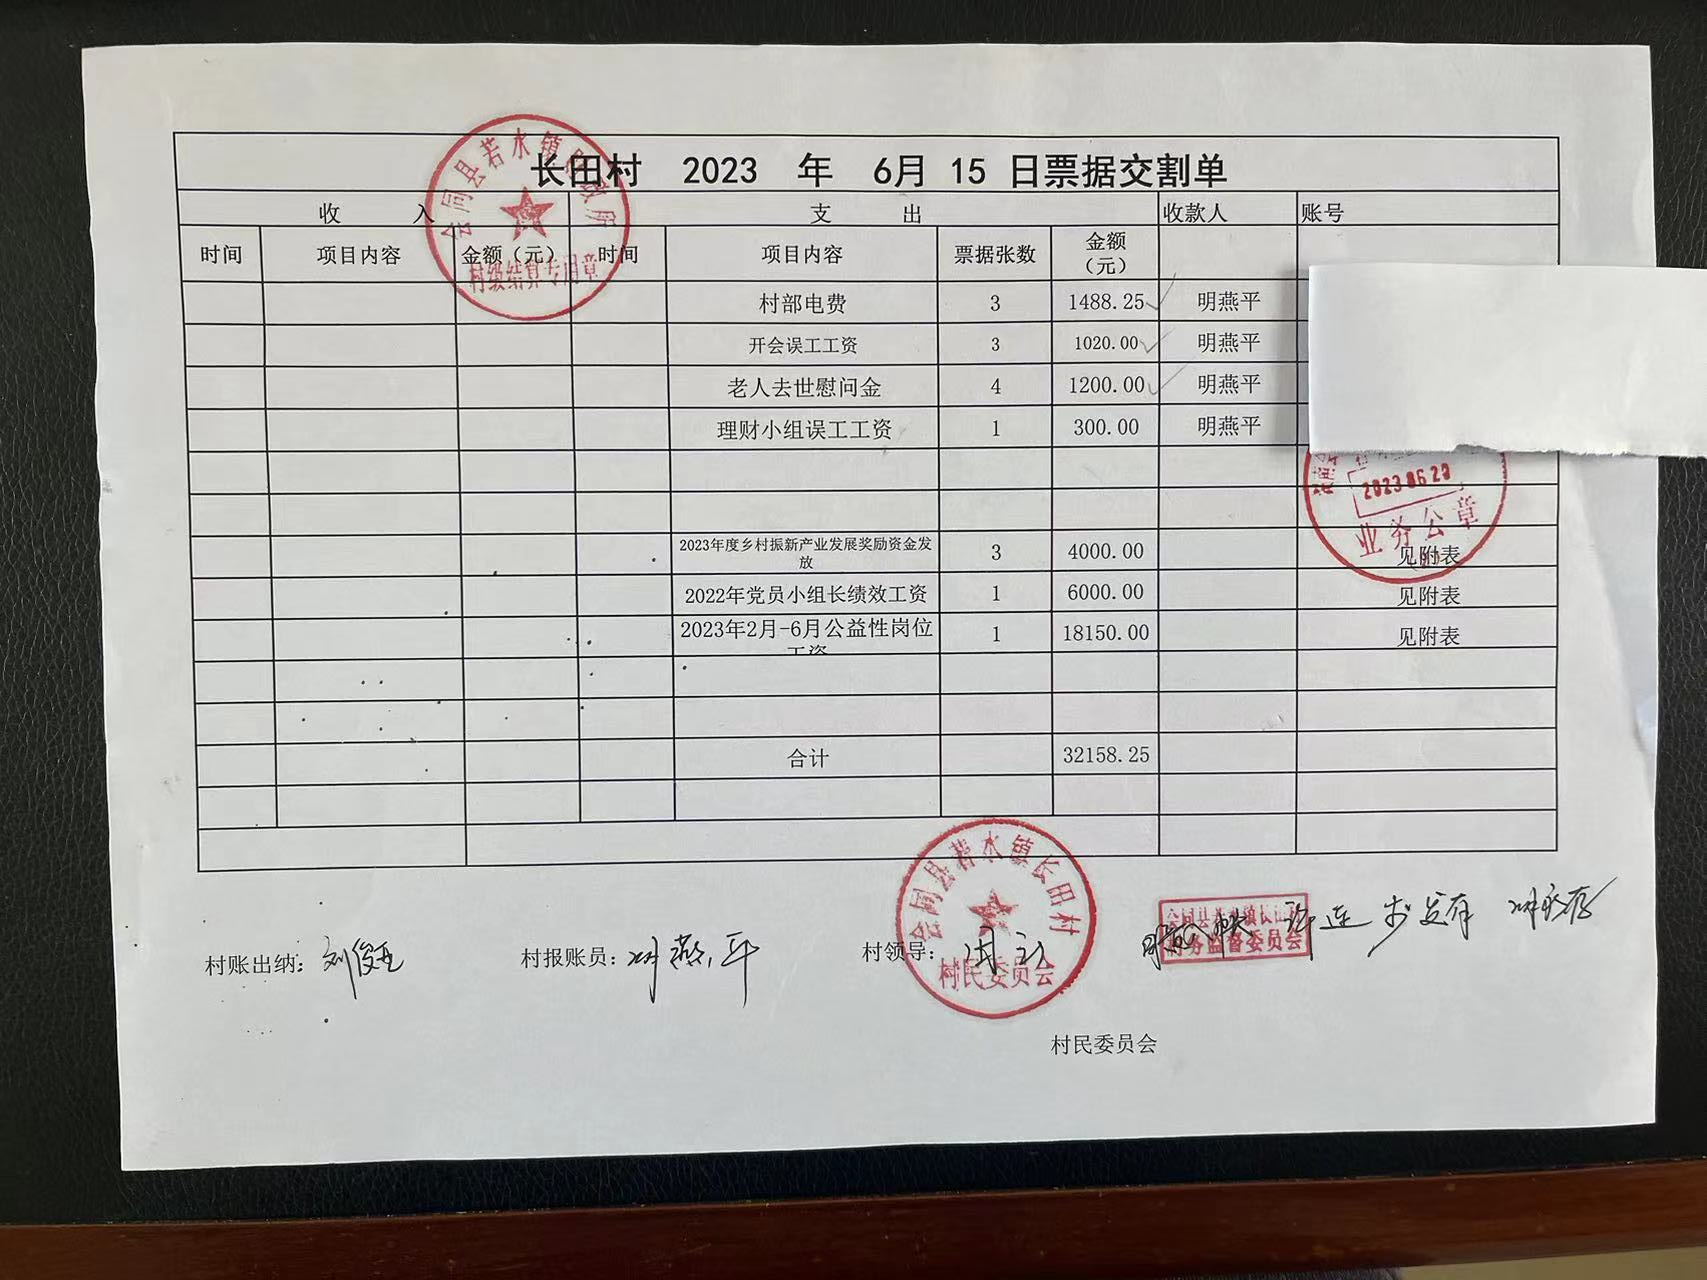 长田村 2023 年 6月 15 日票据交割单
收 入 支 出 收款人 账号
时间 项目内容 金额（元） 时间 项目内容 票据张数 金额（元）
村部电费 3 1488.25 明燕平
开会误工工资 3 1020.00 明燕平
老人去世慰问金 4 1200.00 明燕平
理财小组误工工资 1 300.00 明燕平
2023年度乡村振新产业发展奖励资金发放 3 4000.00 见附表
2022年党员小组长绩效工资 1 6000.00 见附表
2023年2月-6月公益性岗位工资 1 18150.00 见附表
合计 32158.25
村账出纳：
村报账员：明燕平
村领导：
村民委员会
会同县若水镇财政所
村级结算专用章
2023 06 20
业务公章
会同县若水镇长田村
村民委员会
会同县若水镇长田村
财务监督委员会